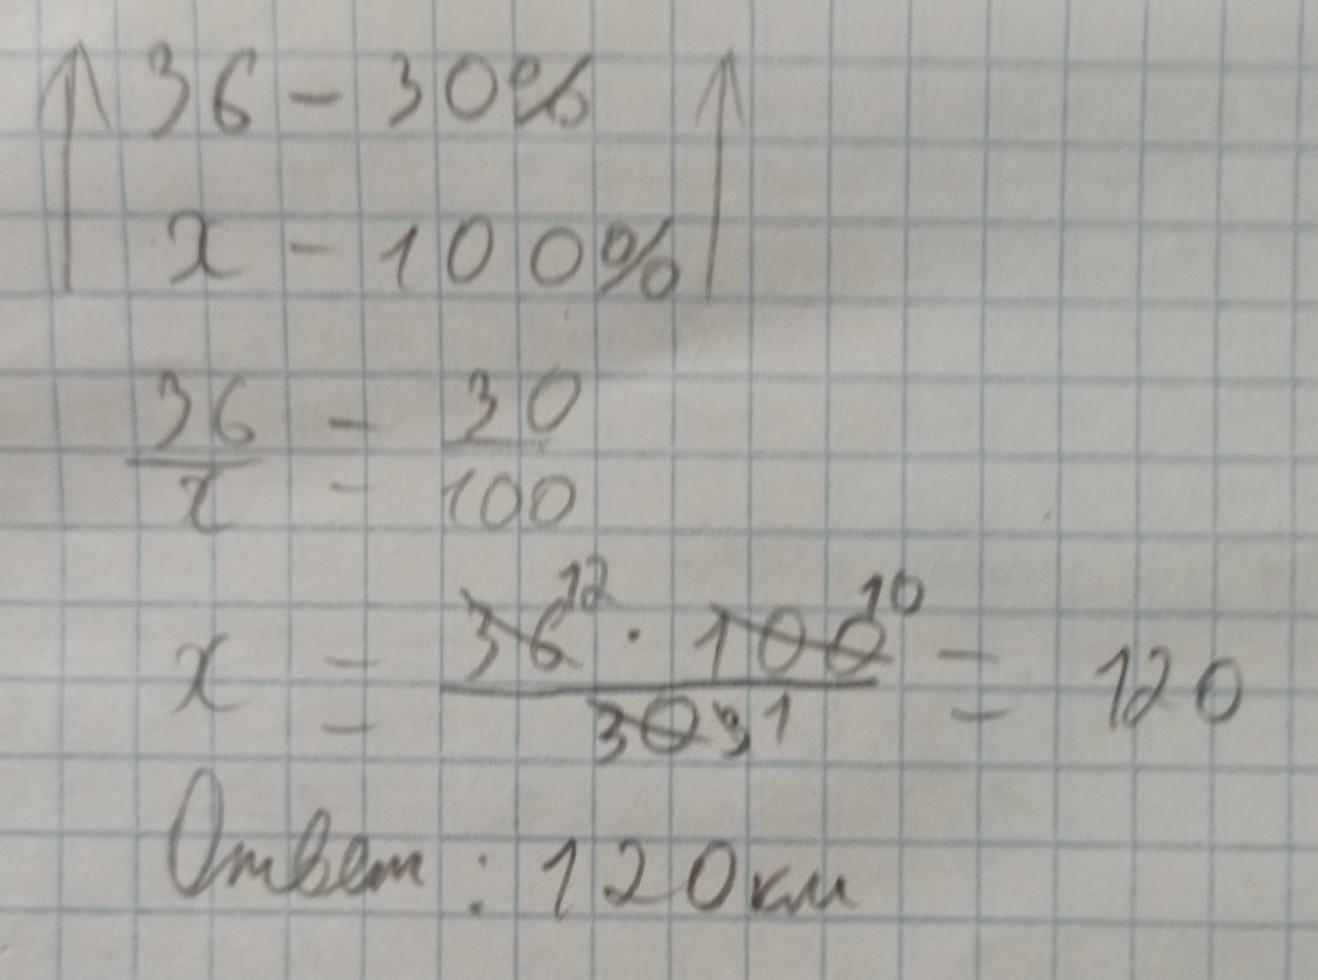 ↑ 36 - 30% ↑
x - 100%
36/x = 30/100
x = 36 12 · 100 10 / 30 3 1 = 120
Ответ : 120 км